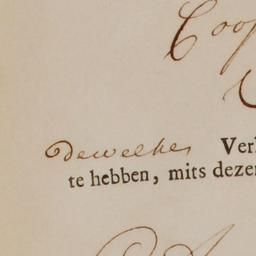 Coop
Dewelke, Ver
te hebben, mits deze